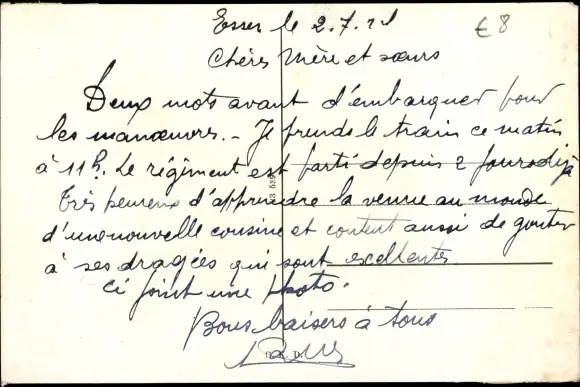 Essen le 2.7.21
€8
Chères Mère et sœurs
Deux mots avant d'embarquer pour
les manœuvres. - Je prends le train ce matin
à 11h. Le régiment est parti depuis 2 jours déjà
Très heureux d'apprendre la venue au monde
d'une nouvelle cousine et content aussi de gouter
à ses dragées qui sont excellentes.
Ci joint une photo.
Bons baisers à tous